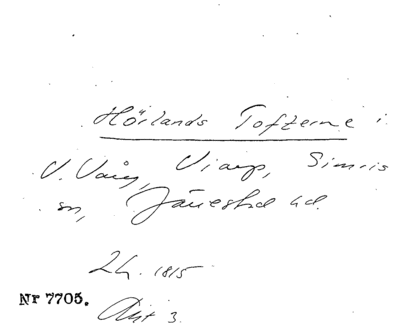 Hörlands Tofterne i
V. Vång, Viarp, Simris
sn, Järrestad hd.
24. 1815
Nr 7705.
Akt 3.